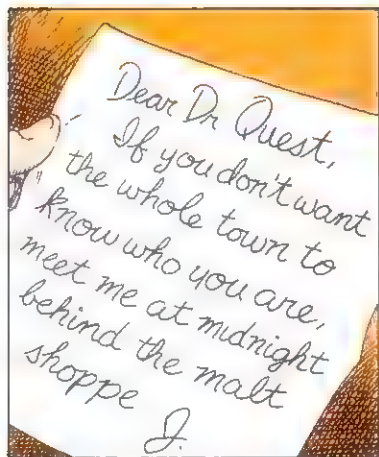 Dear Dr Quest,
If you don't want
the whole town to
know who you are,
meet me at midnight
behind the malt
shoppe
J.